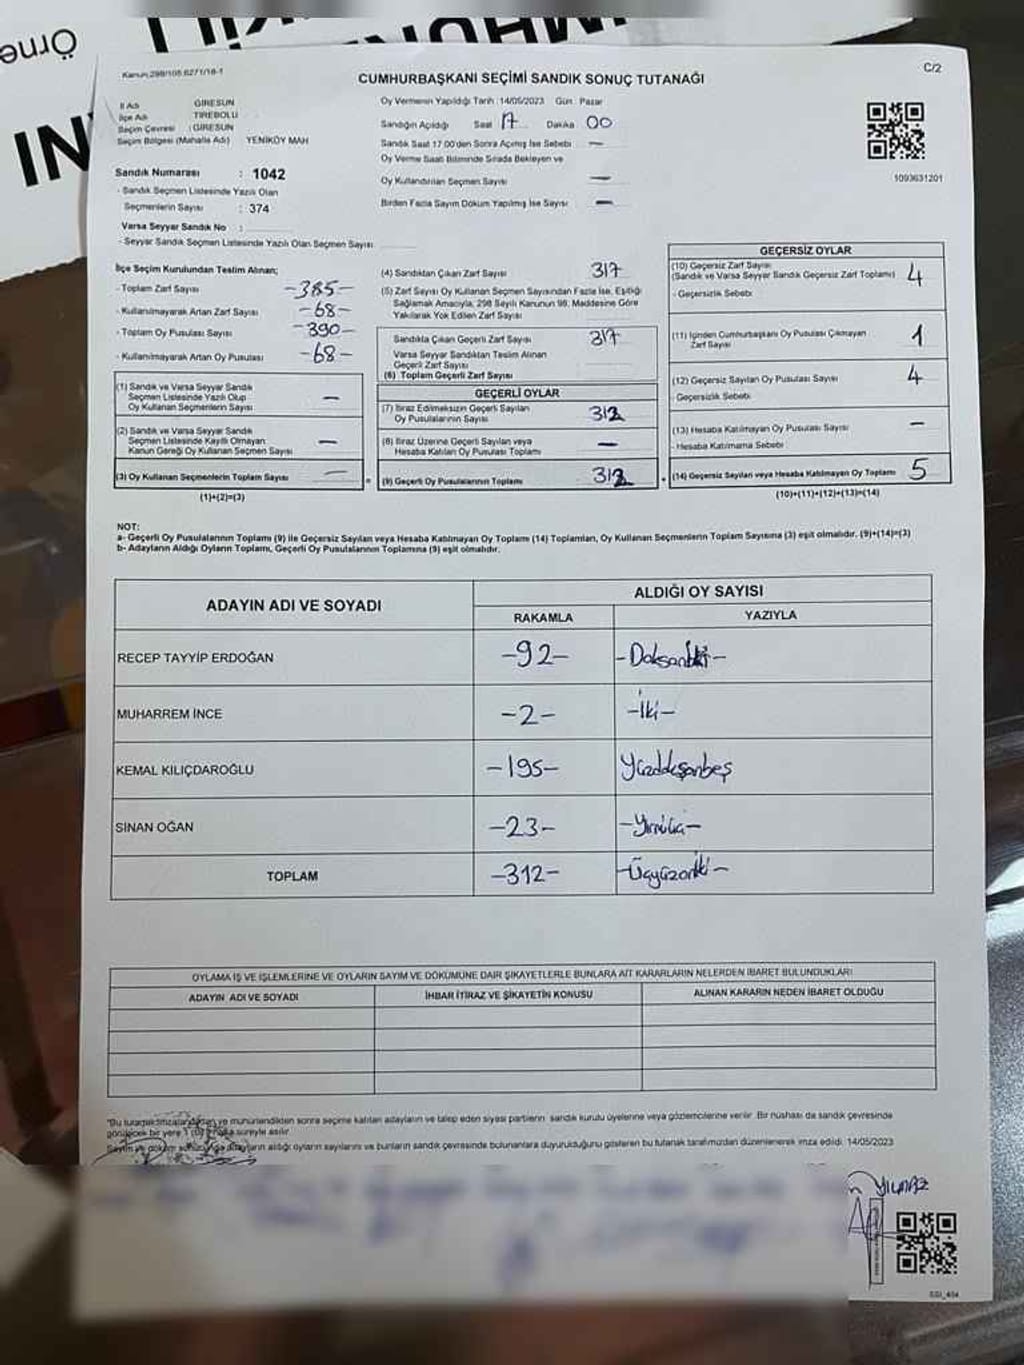 Örne
IN
Kanun:298/105,6271/18-1
C/2
CUMHURBAŞKANI SEÇİMİ SANDIK SONUÇ TUTANAĞI
İl Adı GİRESUN
İlçe Adı TİREBOLU
Seçim Çevresi : GİRESUN
Seçim Bölgesi (Mahalle Adı) YENİKÖY MAH
Sandık Numarası : 1042
- Sandık Seçmen Listesinde Yazılı Olan
Seçmenlerin Sayısı : 374
Varsa Seyyar Sandık No :
- Seyyar Sandık Seçmen Listesinde Yazılı Olan Seçmen Sayısı
Oy Vermenin Yapıldığı Tarih : 14/05/2023 Gün : Pazar
Sandığın Açıldığı Saat 17 Dakika 00
Sandık Saat 17:00'den Sonra Açılmış İse Sebebi —
Oy Verme Saati Bitiminde Sırada Bekleyen ve
Oy Kullandırılan Seçmen Sayısı —
Birden Fazla Sayım Döküm Yapılmış İse Sayısı —
1093631201
İlçe Seçim Kurulundan Teslim Alınan;
- Toplam Zarf Sayısı -385-
- Kullanılmayarak Artan Zarf Sayısı -68-
- Toplam Oy Pusulası Sayısı -390-
- Kullanılmayarak Artan Oy Pusulası -68-
(1) Sandık ve Varsa Seyyar Sandık
Seçmen Listesinde Yazılı Olup
Oy Kullanan Seçmenlerin Sayısı —
(2) Sandık ve Varsa Seyyar Sandık
Seçmen Listesinde Kayıtlı Olmayan
Kanun Gereği Oy Kullanan Seçmen Sayısı —
(3) Oy Kullanan Seçmenlerin Toplam Sayısı —
(1)+(2)=(3)
(4) Sandıktan Çıkan Zarf Sayısı 317
(5) Zarf Sayısı Oy Kullanan Seçmen Sayısından Fazla İse, Eşitliği
Sağlamak Amacıyla, 298 Sayılı Kanunun 98. Maddesine Göre
Yakılarak Yok Edilen Zarf Sayısı
Sandıkta Çıkan Geçerli Zarf Sayısı 317
Varsa Seyyar Sandıktan Teslim Alınan
Geçerli Zarf Sayısı
(6) Toplam Geçerli Zarf Sayısı
GEÇERLİ OYLAR
(7) İtiraz Edilmeksizin Geçerli Sayılan
Oy Pusulalarının Sayısı 312
(8) İtiraz Üzerine Geçerli Sayılan veya
Hesaba Katılan Oy Pusulası Toplamı —
(9) Geçerli Oy Pusulalarının Toplamı 312
GEÇERSİZ OYLAR
(10) Geçersiz Zarf Sayısı
(Sandık ve Varsa Seyyar Sandık Geçersiz Zarf Toplamı) 4
- Geçersizlik Sebebi
(11) İçinden Cumhurbaşkanı Oy Pusulası Çıkmayan
Zarf Sayısı 1
(12) Geçersiz Sayılan Oy Pusulası Sayısı 4
- Geçersizlik Sebebi
(13) Hesaba Katılmayan Oy Pusulası Sayısı —
- Hesaba Katılmama Sebebi
(14) Geçersiz Sayılan veya Hesaba Katılmayan Oy Toplamı 5
(10)+(11)+(12)+(13)=(14)
NOT:
a- Geçerli Oy Pusulalarının Toplamı (9) ile Geçersiz Sayılan veya Hesaba Katılmayan Oy Toplamı (14) Toplamları, Oy Kullanan Seçmenlerin Toplam Sayısına (3) eşit olmalıdır. (9)+(14)=(3)
b- Adayların Aldığı Oyların Toplamı, Geçerli Oy Pusulalarının Toplamına (9) eşit olmalıdır.
ADAYIN ADI VE SOYADI ALDIĞI OY SAYISI
RAKAMLA YAZIYLA
RECEP TAYYİP ERDOĞAN -92- -Doksaniki-
MUHARREM İNCE -2- -İki-
KEMAL KILIÇDAROĞLU -195- Yüzdoksanbeş
SİNAN OĞAN -23- -Yirmiüç-
TOPLAM -312- -Üçyüzoniki-
OYLAMA İŞ VE İŞLEMLERİNE VE OYLARIN SAYIM VE DÖKÜMÜNE DAİR ŞİKAYETLERLE BUNLARA AİT KARARLARIN NELERDEN İBARET BULUNDUKLARI
ADAYIN ADI VE SOYADI İHBAR İTİRAZ VE ŞİKAYETİN KONUSU ALINAN KARARIN NEDEN İBARET OLDUĞU
ve mühürlendikten sonra seçime katılan adayların ve talep eden siyasi partilerin sandık kurulu üyelerine veya gözlemcilerine verilir. Bir nüshası da sandık çevresinde
görülecek bir yere süreyle asılır.
adayların aldığı oyların sayılarını ve bunların sandık çevresinde bulunanlara duyurulduğunu gösteren bu tutanak tarafımızdan düzenlenerek imza edildi. 14/05/2023
YILMAZ